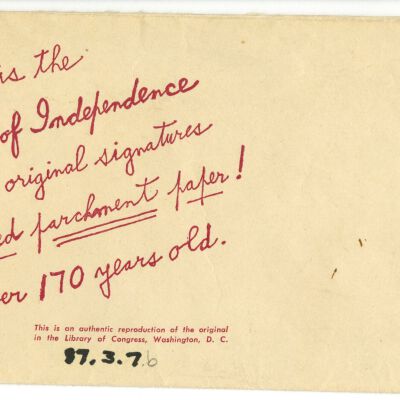 is the
of Independence
original signatures
ed parchment paper!
er 170 years old.
This is an authentic reproduction of the original
in the Library of Congress, Washington, D. C.
87.3.7b